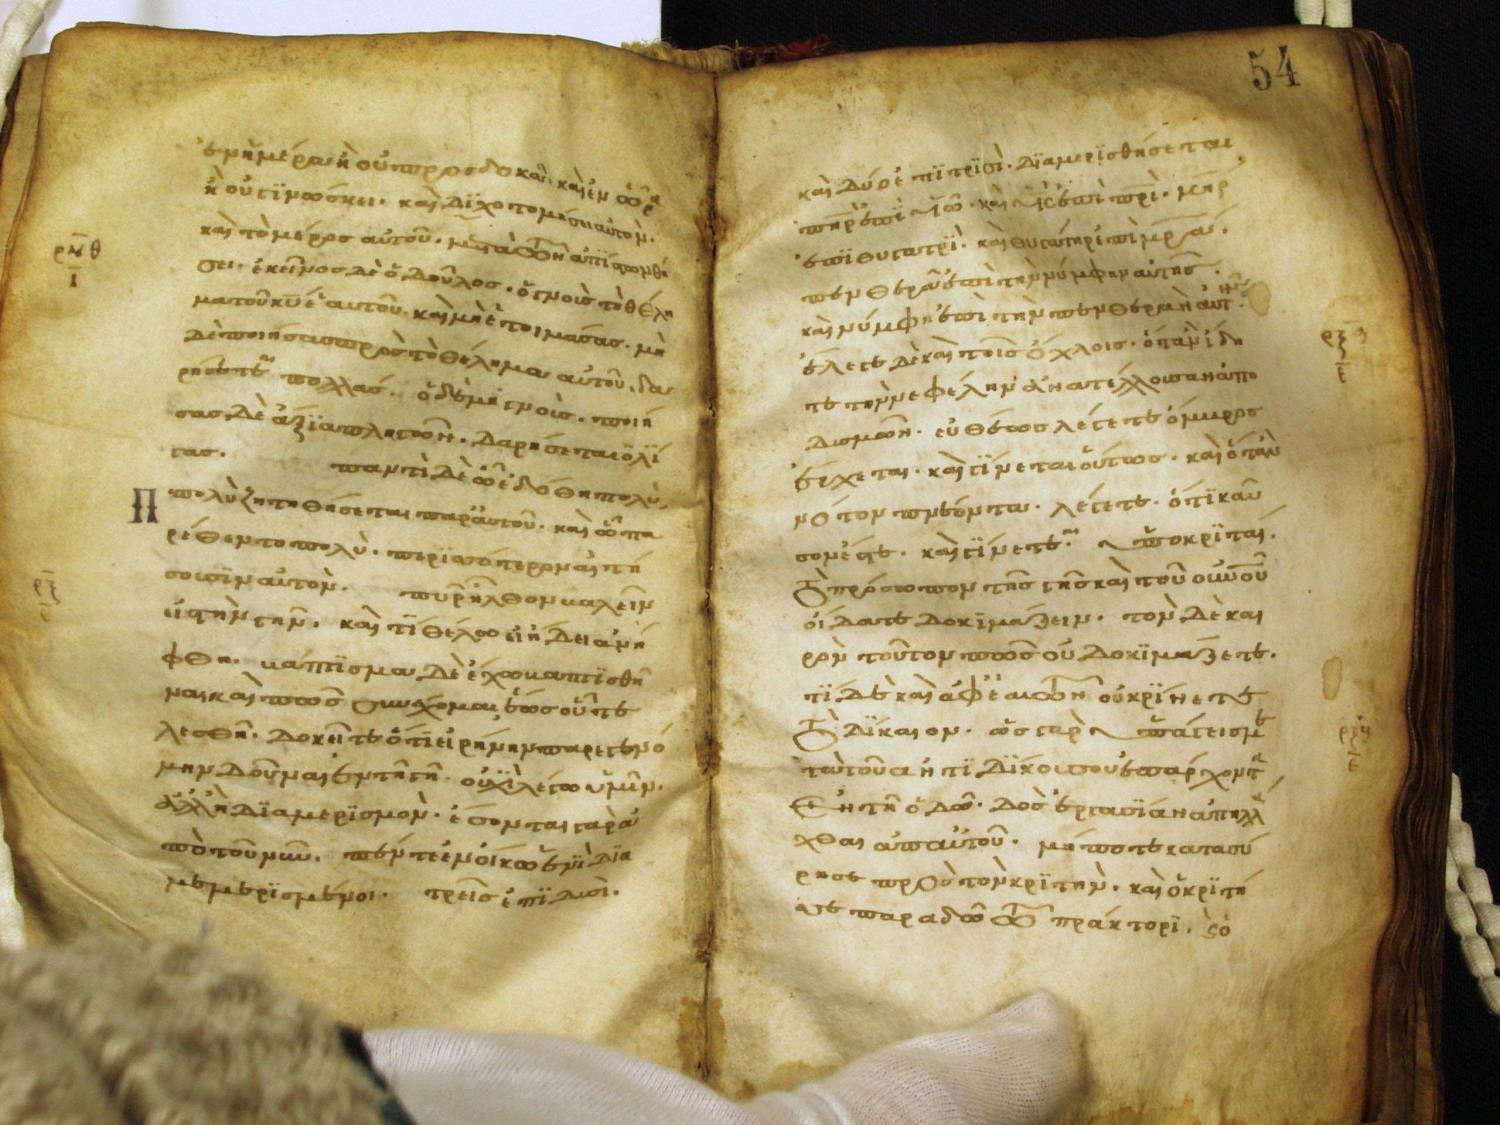 ἐν ἡμέρα ἧ οὐ προσδοκᾶ. καὶ ἐν ὥρα
ἧ οὐ γϊνώσκει. καὶ δϊχοτομήσει αὐτὸν.
καὶ τὸ μέρος αὐτοῦ. μετὰ τῶν ἀπίστων θή
ρνθ
ϊ
σει. ἐκεῖνος δὲ ὁ δοῦλος. ὁ γνοὺς τὸ θέλη
μα τοῦ κυ ἑαυτοῦ. καὶ μὴ ἑτοιμάσας. μὴ
δὲ ποιήσας πρὸς τὸ θέλημα αὐτοῦ. δα
ρήσεται πολλάς. ὁ δὲ μὴ γνοὺς. ποιή
σας δὲ ἄξϊα πληγῶν. δαρήσεται ὀλϊ
γας. παντὶ δὲ ὧ ἐδόθη πολὺ,
Π πολὺ ζητηθήσεται παρ' αὐτοῦ. καὶ ὧ πα
ρέθεντο πολὺ. περϊσσότερον αἰτή
σουσϊν αὐτὸν. πῦρ ἦλθον βαλεῖν
ρξ
εἰς τὴν γῆν. καὶ τί θέλω εἰ ἤδει ἀνή
φθη. βάπτϊσμα δὲ ἔχω βαπτϊσθῆ
ναι καὶ πῶς συνέχομαι, ἕως οὗ τε
λεσθῆ. δοκεῖτε ὅτι εἰρήνην παρεγενό
μην δοῦναι ἐν τῆ γῆ. οὐχϊ λέγω ὑμῖν.
ἀλλ' ἢ δϊαμερϊσμὸν. ἔσονται γὰρ ἀ
πὸ τοῦ νῦν. πέντε ἐν οἴκω ἑνϊ δϊα
μεμερϊσμένοι. τρεῖς ἐπϊ δυσὶ.
54
καὶ δύο ἐπϊ τρϊσὶ. δϊαμερϊσθήσεται
πηρ ἐπϊ υϊῶ. καὶ υϊὸς ἐπὶ πρϊ. μηρ
ἐπϊ θυγατρϊ. καὶ θυγάτηρ ἐπὶ μρα.
πενθερὰ ἐπὶ τὴν νύμφην αὐτῆς.
καὶ νύμφη ἐπὶ τὴν πενθερὰν αὐτῆς.
ἔλεγε δὲ καὶ τοῖς ὄχλοις. ὅταν ἴδη
τε τὴν νεφέλην ἀνατέλλουσαν ἀπὸ
δυσμῶν. εὐθέως λέγετε ὄμβρος
ἔρχεται. καὶ γϊνεται οὕτως. καὶ ὅταν
νότον πνέοντα. λέγετε. ὅτϊ καύ
σων ἔσται. καὶ γϊνεται ὑποκρϊταὶ.
τὸ πρόσωπον τῆς γῆς καὶ τοῦ οὐνοῦ
οἴδατε δοκϊμάζειν. τὸν δὲ και
ρὸν τοῦτον πῶς οὐ δοκϊμάζετε.
τϊ δὲ καὶ ἀφ' ἑαυτῶν οὐ κρϊνετε
τὸ δϊκαιον. ὡς γὰρ ὑπάγεις με
τὰ τοῦ ἀντϊδϊκου σου ἐπ' ἄρχοντα
ἐν τῆ ὁδῶ. δὸς ἐργασϊαν ἀπηλλά
χθαι ἀπ' αὐτοῦ. μήποτε κατασύ
ρη σε πρὸς τὸν κρϊτὴν. καὶ ὁ κρϊτὴ
σε παραδῶ τῶ πράκτορϊ.